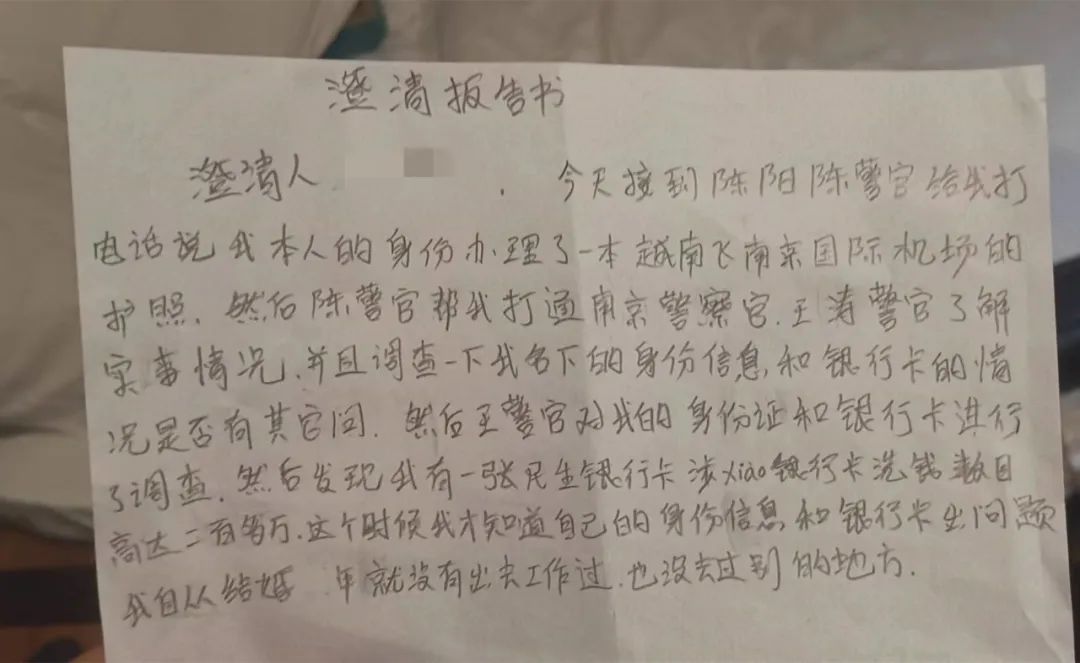 澄清报告书
澄清人 . 今天接到陈阳陈警官给我打
电话说我本人的身份办理了一本越南飞南京国际机场的
护照. 然后陈警官帮我打通南京警察官.王涛警官了解
实事情况.并且调查一下我名下的身份信息和银行卡的情
况是否有其它问. 然后王警官对我的身份证和银行卡进行
了调查. 然后发现我有一张民生银行卡涉xiao银行卡洗钱数目
高达二百多万.这个时候我才知道自己的身份信息和银行卡出问题
我自从结婚 年就没有出去工作过.也没去过别的地方.